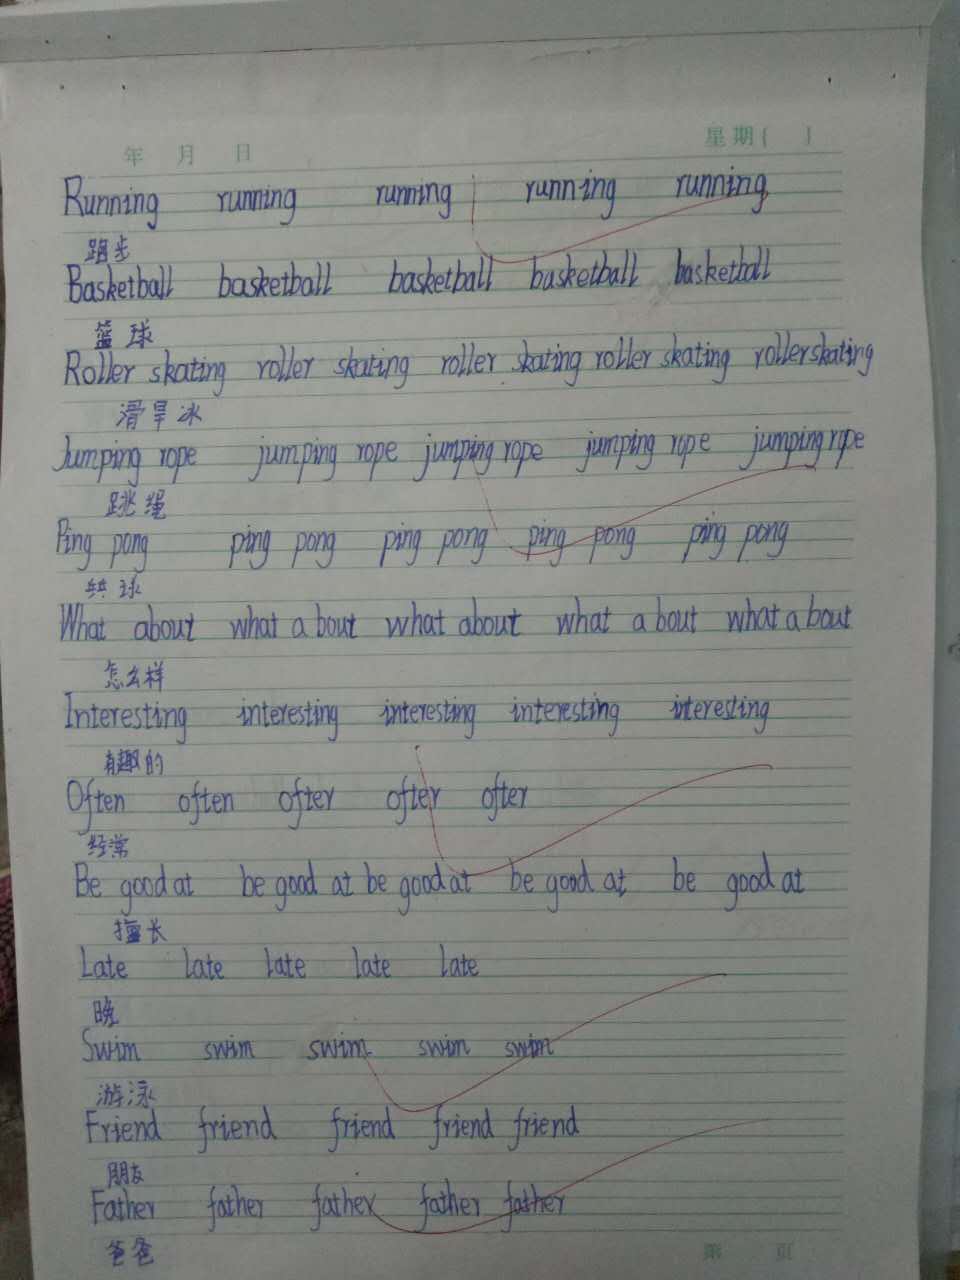 年 月 日 星期( )
Running running running running running
跑步
Basketball basketball basketball basketball basketball
篮球
Roller skating roller skating roller skating roller skating rollerskating
滑旱冰
Jumping rope jumping rope jumping rope jumping rope jumping rope
跳绳
Ping pong ping pong ping pong ping pong ping pong
乒球
What about what a bout what about what a bout what a bout
怎么样
Interesting interesting interesting interesting interesting
有趣的
Often often ofter ofter ofter
经常
Be good at be good at be good at be good at be good at
擅长
Late late late late late
晚
Swim swim swim swim swim
游泳
Friend friend friend friend friend
朋友
Father father father father father
爸爸
第 页